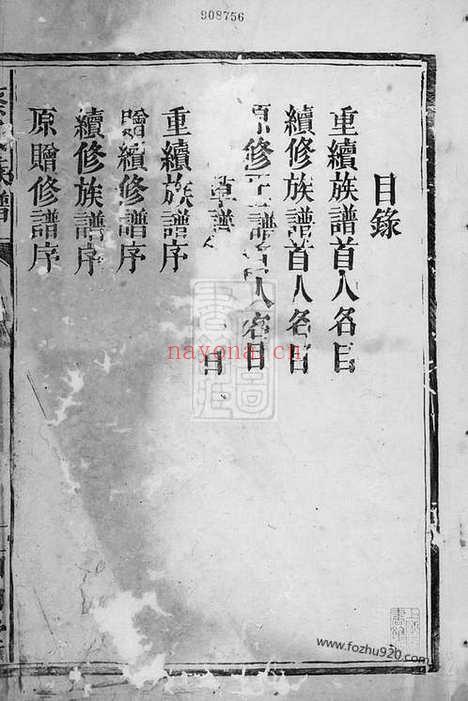 908756
目錄
重續族譜首人名目
續修族譜首人名目
修譜人名目
草譜目
重續族譜序
贈續修譜序
續修族譜序
原贈修譜序
族譜
nayona.cn
www.fozhu920.com